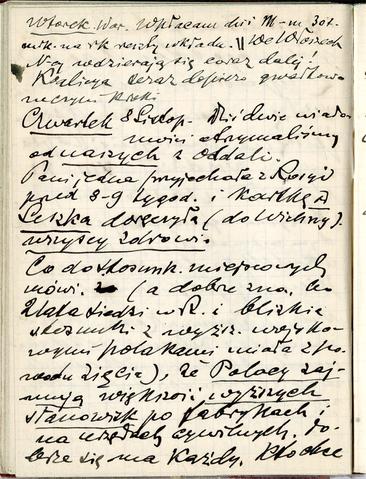 Wtorek. War. Wpłacam dziś M-m 30 t.
mk. na rk reszty wkładu. || We Włoszech
N-cy wdzierają się coraz dalej.
Kulicya teraz dopiero gwałtowne
czyni kroki
Czwartek 8 Listop. Dziś dwie wiado-
mości otrzymaliśmy
od naszych z oddali.
Pani jedna przyjechała z Rosyi
przed 8-9 tygod. i kartkę A
Leszka doręczyła (do Wichny).
wszyscy zdrowi.
Co do stosunk. miejscowych
mówi. (a dobrze zna, bo
2 lata siedzi w R. i bliskie
stosunki z wyższ. wojsko-
wymi polakami miała z po-
wodu zięcia), że Polacy zaj-
mują większość wyższych
stanowisk po fabrykach i
na urzędach cywilnych. Do-
brze się ma każdy, kto chce